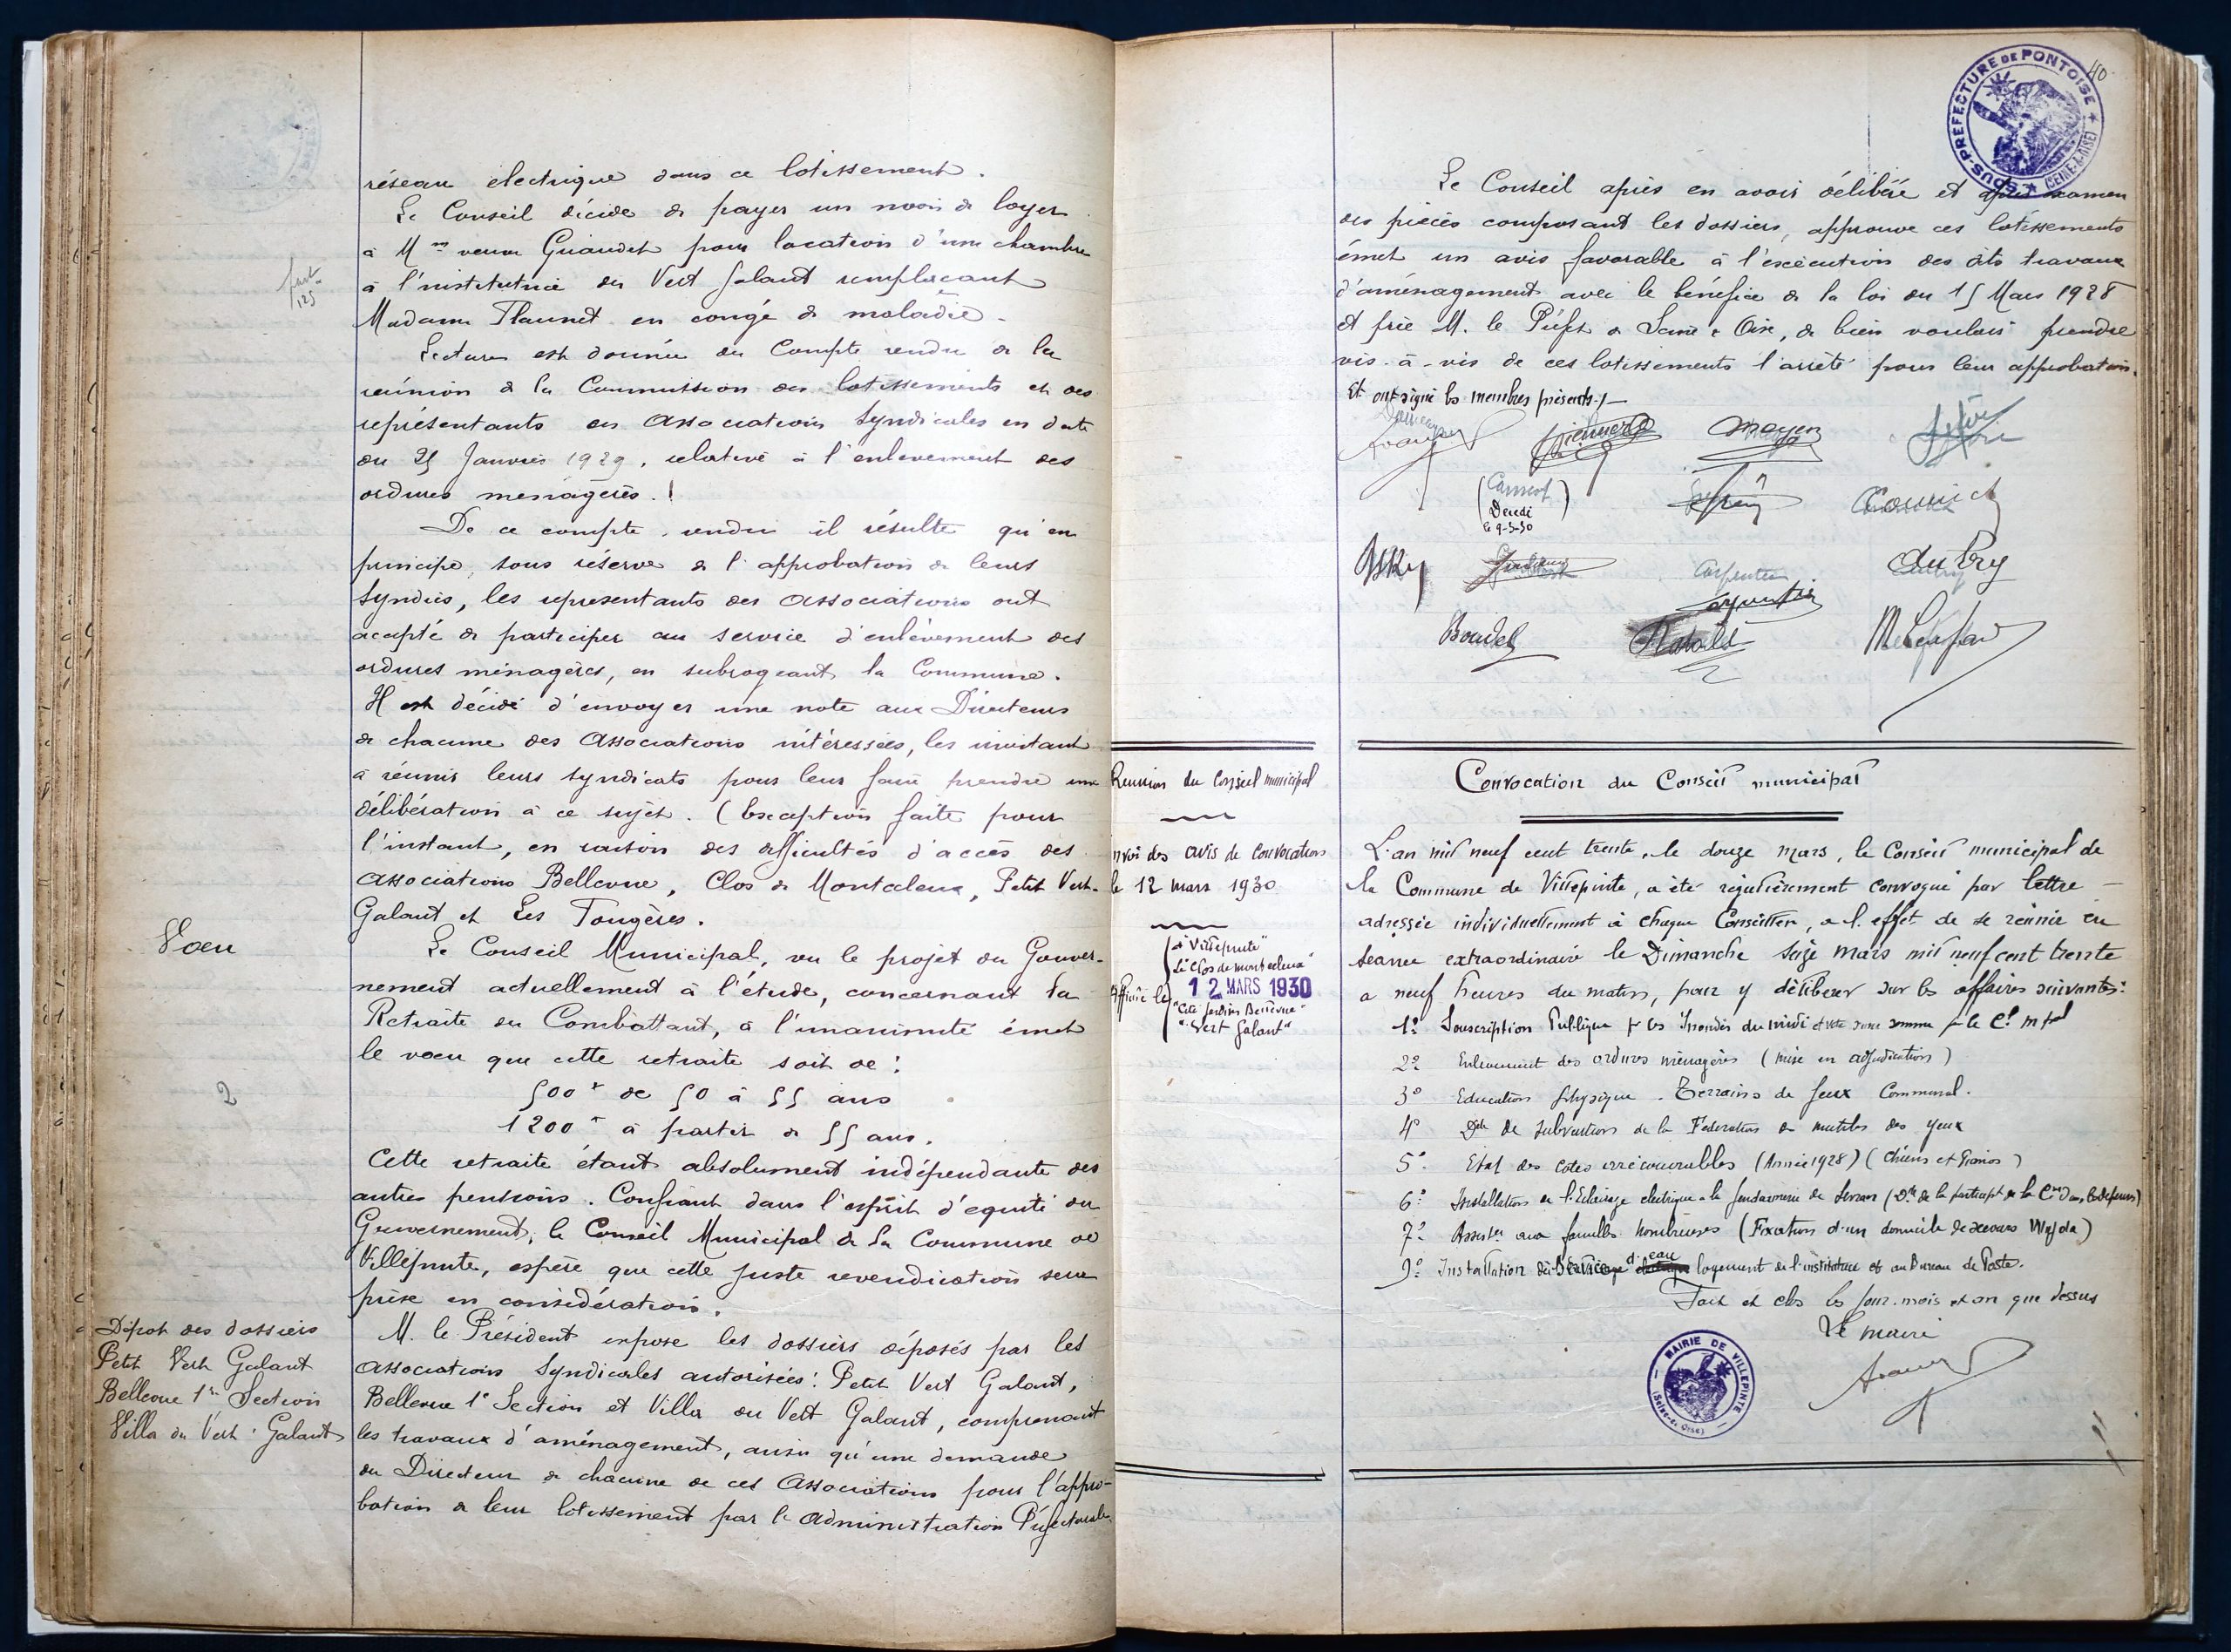 réseau electrique dans ce lotissement.
Le Conseil décide de payer un mois de loyer
à Mme veuve Griaudet pour location d'une chambre
à l'institutrice du Vert Galant remplaçant
Madame Flaunet en congé de maladie.
Lecture est donnée du Compte rendu de la
réunion de la Commission des lotissements et des
représentants des Associations Syndicales en date
du 25 Janvier 1929, relative à l'enlevement des
ordures menagères.
De ce compte rendu il résulte qu'en
principe, sous réserve de l'approbation de leurs
Syndics, les représentants des Associations ont
accepté de participer au service d'enlèvement des
ordures ménagères, en subrogeant la Commune.
Il est décidé d'envoyer une note aux Directeurs
de chacune des Associations intéressées, les invitant
à réunir leurs syndicats pour leur faire prendre une
délibération à ce sujet. (Exception faite pour
l'instant, en raison des difficultés d'accès des
Associations Bellevue, Clos de Montceleux, Petit Vert-
Galant et Les Fougères.
Voeu
Le Conseil Municipal, vu le projet du Gouver-
nement actuellement à l'étude, concernant la
Retraite du Combattant, à l'unanimité émet
le voeu que cette retraite soit de :
500f de 50 à 55 ans
2
1200f à partir de 55 ans.
Cette retraite étant absolument indépendante des
autres pensions. Confiant dans l'esprit d'equité du
Gouvernement, le Conseil Municipal de la Commune de
Villepinte, espère que cette juste revendication sera
prise en considération.
Dépot des dossiers
Petit Vert Galant
Bellevue 1re Section
Villa du Vert Galant
M. le Président expose les dossiers déposés par les
Associations Syndicales autorisées: Petit Vert Galant,
Bellevue 1e Section et Villa du Vert Galant, comprenant
les travaux d'aménagement, ainsi qu'une demande
du Directeur de chacune de ces Associations pour l'appro-
bation de leur lotissement par l'Administration Préfectorale.
40
SOUS-PREFECTURE DE PONTOISE
(SEINE-&-OISE)
Le Conseil après en avoir délibéré et après examen
des pièces composant les dossiers, approuve ces lotissements
émet un avis favorable à l'exécution des dits travaux
d'aménagement avec le bénéfice de la loi du 15 Mars 1928
et prie M. le Préfet de Seine & Oise, de bien vouloir prendre
vis-à-vis de ces lotissements l'arrêté pour leur approbation.
Et ont signé les membres présents./-
Moyen
Décédé
le 9-3-30
Carpentier
Aubry
Boudet
Réunion du Conseil municipal
nvoi des avis de convocations
le 12 mars 1930
Affiché le
à "Villepinte"
Le "Clos de montceleux"
12 MARS 1930
"Cité Jardins Bellevue"
"Vert Galant"
Convocation du Conseil municipal
L'an mil neuf cent trente, le douze mars, le Conseil municipal de
la Commune de Villepinte, a été régulièrement convoqué par lettre
adressée individuellement à chaque Conseiller, à l'effet de se réunir en
Séance extraordinaire le Dimanche seize mars mil neuf cent trente
a neuf heures du matin, pour y délibérer sur les affaires suivantes:
1° Souscription Publique pr les Inondés du midi et vote d'une somme p. le Cl mpal
2° Enlèvement des ordures ménagères (mise en adjudication)
3° Education Physique. Terrains de Jeux Communal.
4° Dde de subvention de la Federation des mutilés des yeux
5° Etat des cotes irrécouvrables (Année 1928) (Chiens et Pianos)
6° Installation de l'Eclairage electrique à la gendarmerie de Sevran (Dde de la particip. de la Cne dans les dépenses)
7° Assistce aux familles nombreuses (Fixation d'un domicile de secours
9° Installation d'eau logement de l'institutrice et au Bureau de Poste.
Fait et clos les jour, mois et an que dessus
Le maire
MAIRIE DE VILLEPINTE
(Seine-&-Oise)